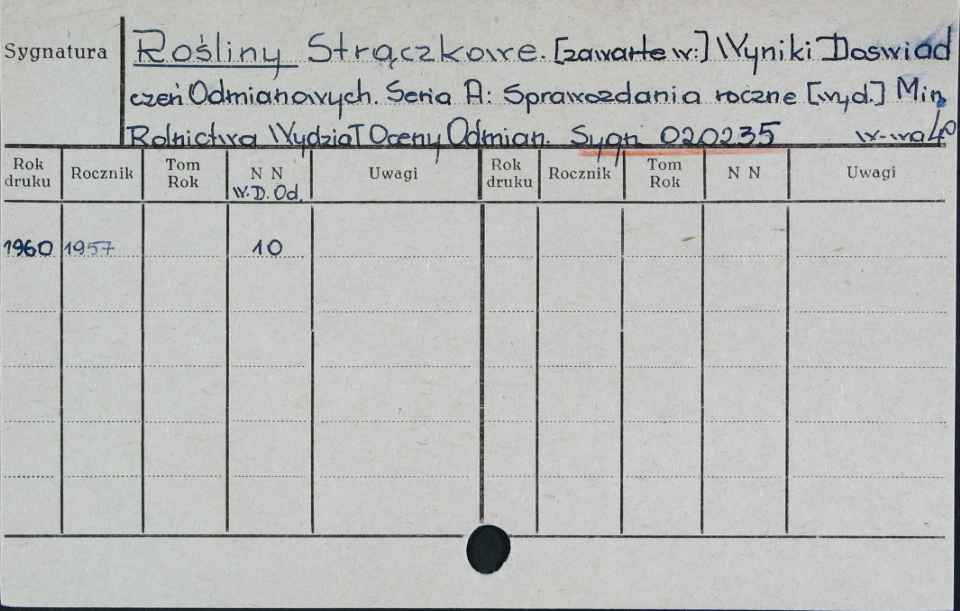 Sygnatura
Rośliny Strączkowe. [zawarte w:] Wyniki Doswiad
czeń Odmianowych. Seria A: Sprawozdania roczne [wyd.] Min.
Rolnictwa Wydział Oceny Odmian. Sygn. 020235 W-wa 4°
Rok druku Rocznik Tom Rok N N Uwagi Rok druku Rocznik Tom Rok N N Uwagi
W.D.Od.
1960 1957 10